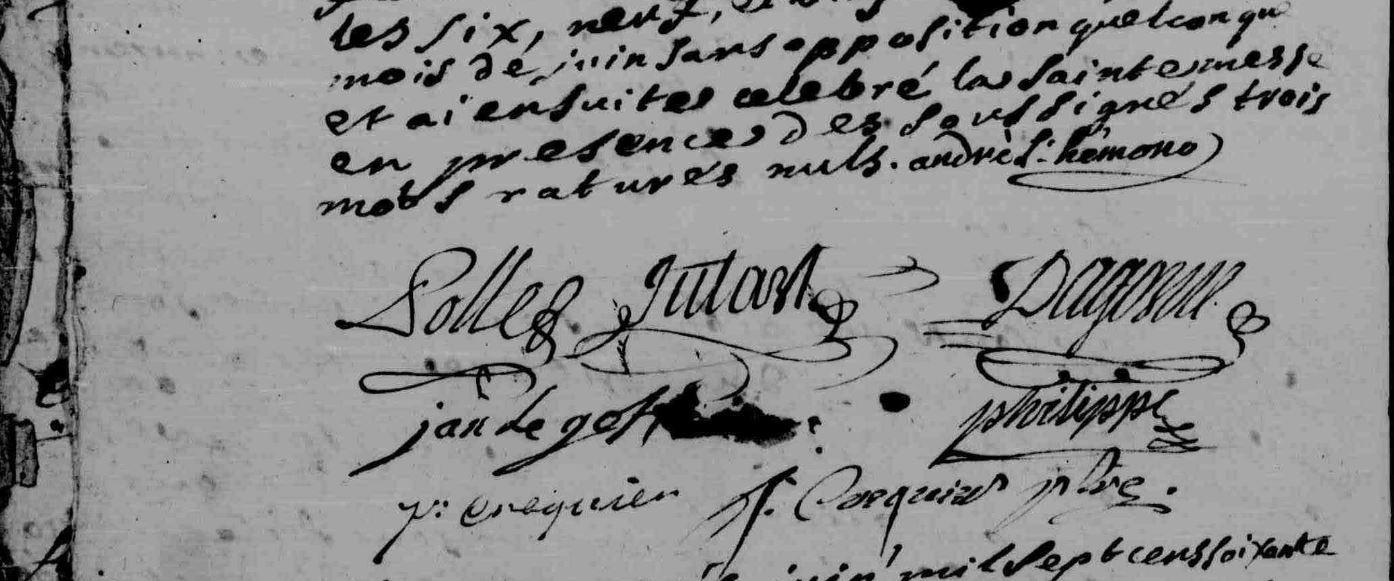 les six, neuf,
mois de juin sans opposition quelconque
et ai ensuites celebré la sainte messe
en presences des soussignés trois
mots raturés nuls. andrès: hémono
Solles Jutart Dagorne
jan le gof philippe
p: crequier J. Crequier ptre.
juin mil sept cens soixante